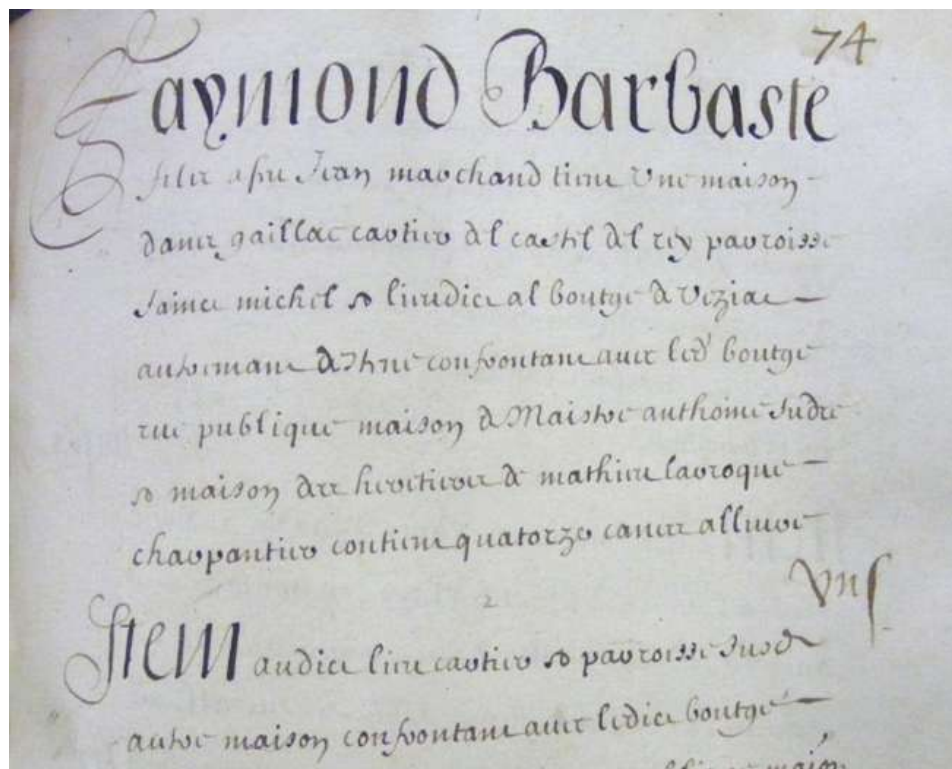 74
Raymond Barbaste
filz a feu Jean marchand tient une maison
dans gaillac cartier del castel del rey parroisse
Sainct michel & lieu dict al boutge de veziac
autremant confrontant avec led boutge
rue publique maison de Maistre anthoine Sudre
& maison des heretiers de mathieu laroque
charpantier contient quatorze canes allivre
Item audict lieu cartier & parroisse Susd
autre maison confrontant avec ledict boutge